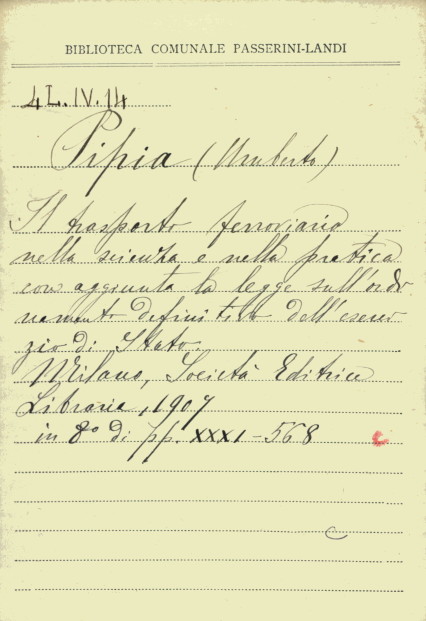 BIBLIOTECA COMUNALE PASSERINI-LANDI
4L.IV.14
Pipia (Umberto)
Il trasporto ferroviario
nella scienza e nella pratica
con aggiunta la legge sull'ordi
namento definitivo dell'eserci
zio di Stato
Milano, Società Editrice
Libraria, 1907
in 8° di pp. XXXI-568